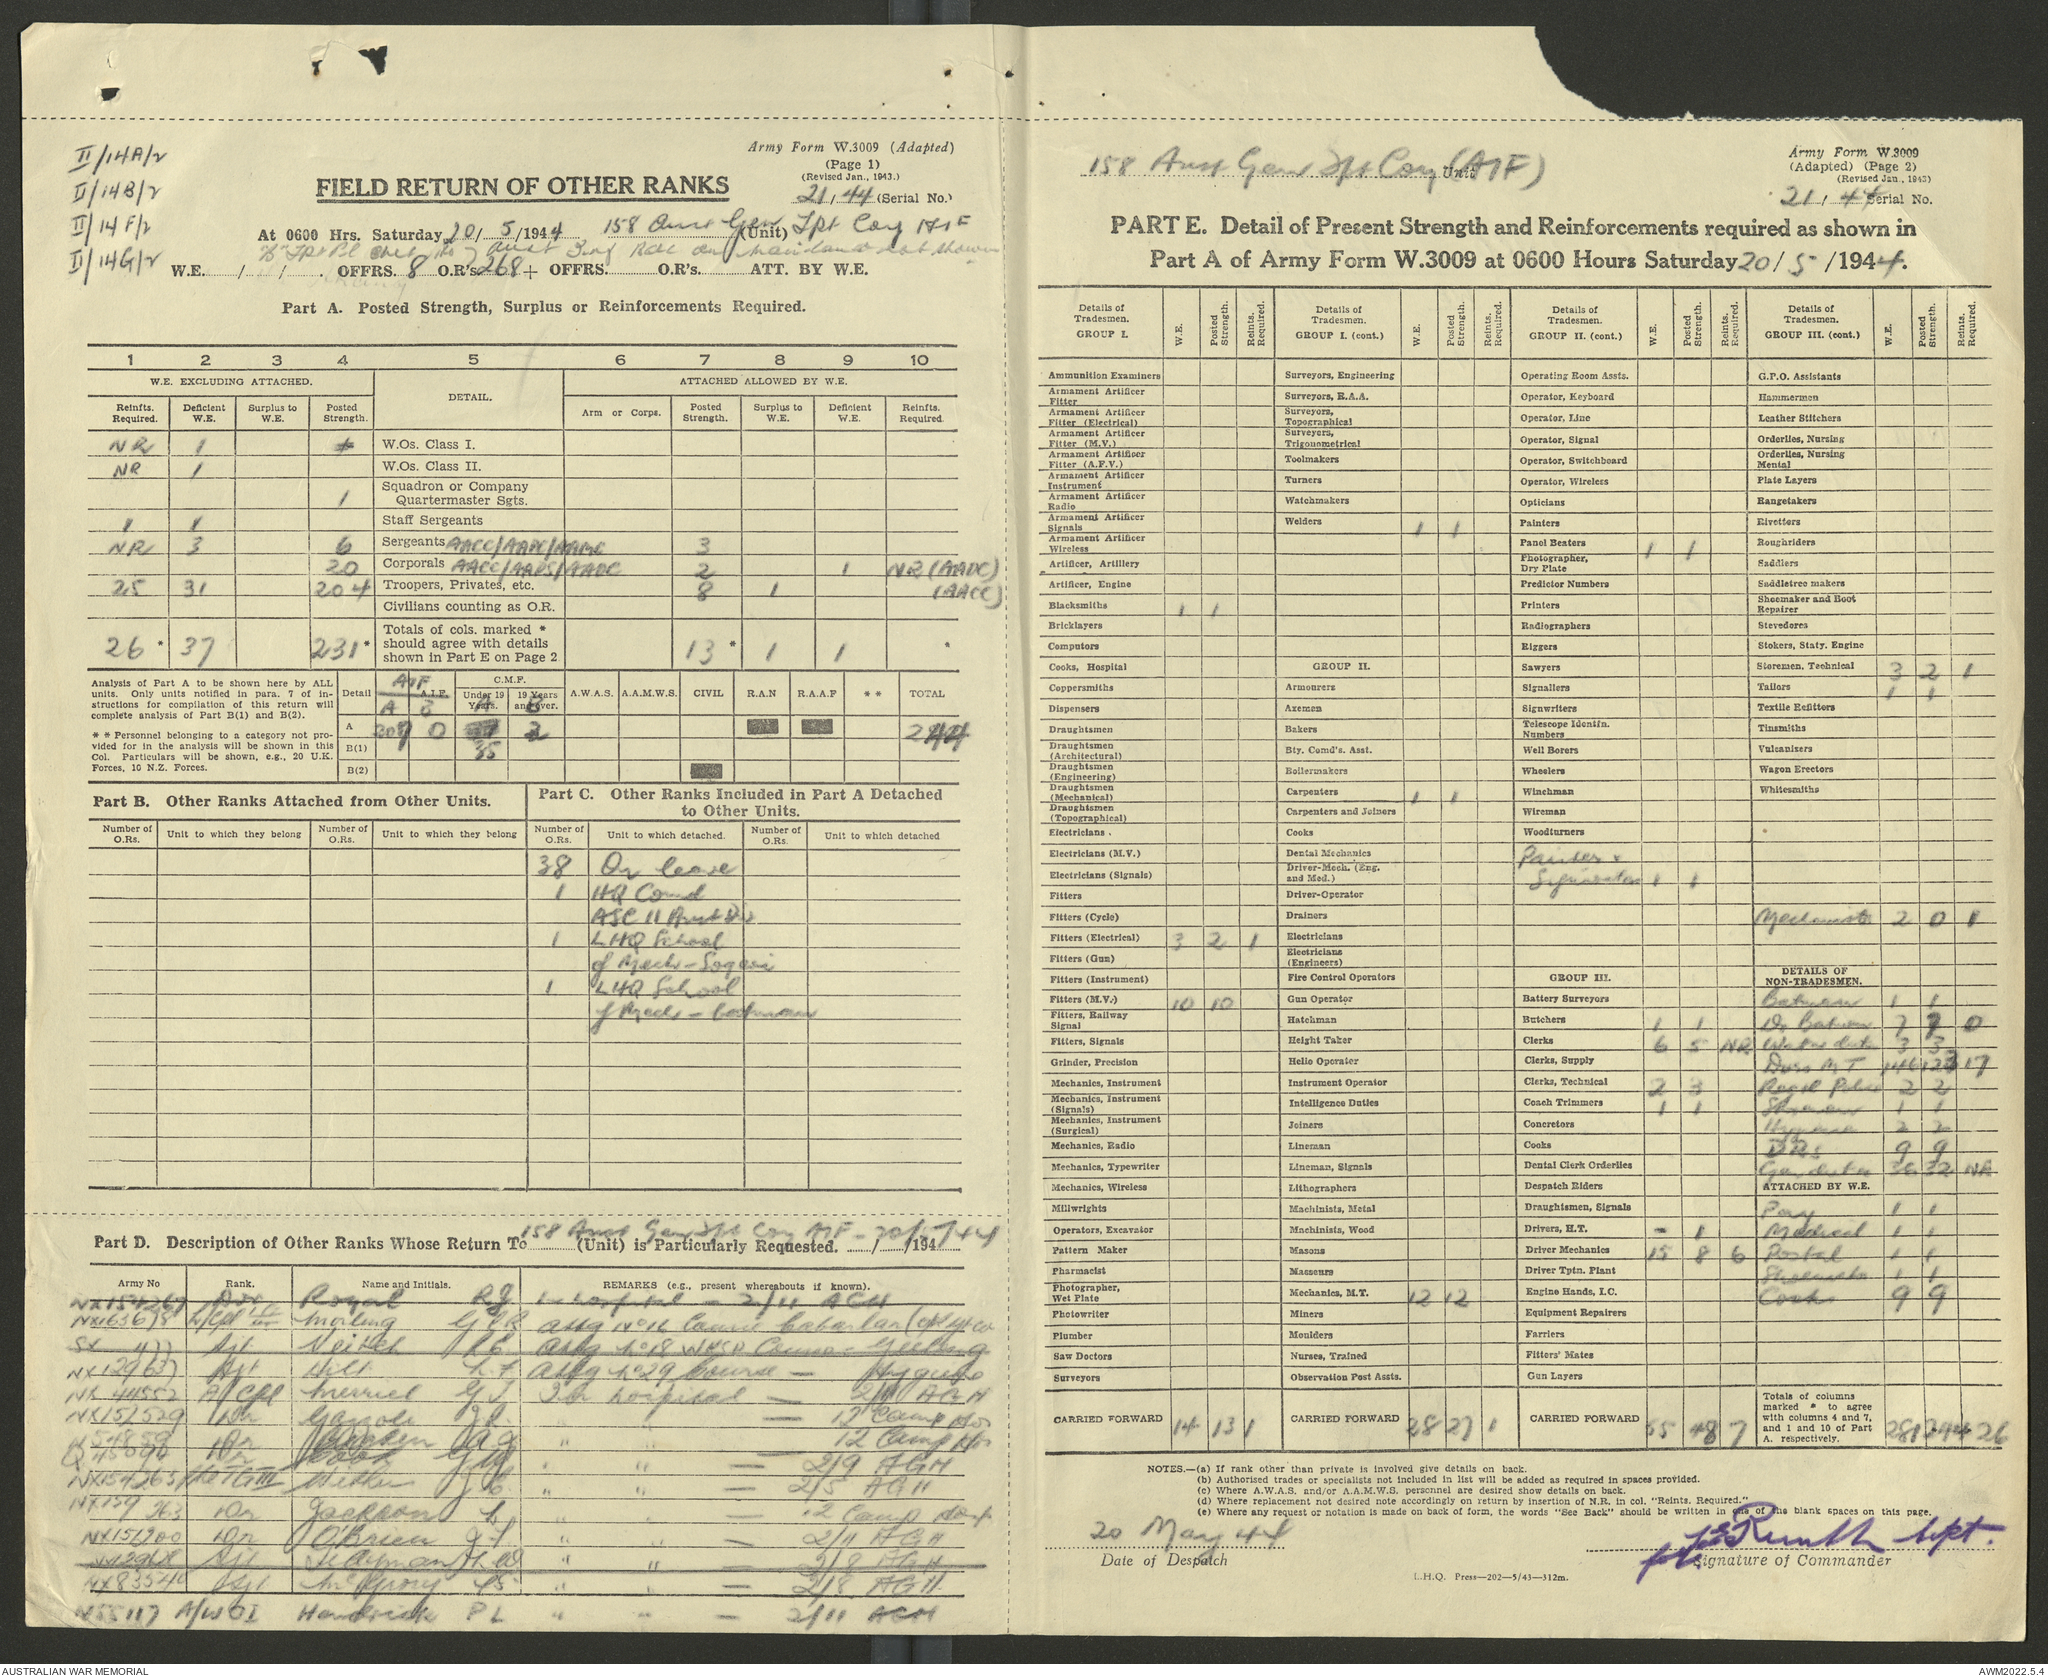 II/14A/2
II/14B/2
II/14F/2
II/14G/2
Army Form W.3009 (Adapted)
(Page 1)
(Revised Jan., 1943.)
21/44 (Serial No.)
FIELD RETURN OF OTHER RANKS
At 0600 Hrs. Saturday 20/5/1944 158 Aust Gen (Unit) Tpt Coy AIF
W.E. / / . OFFRS. 8 O.R's 268 + OFFRS. O.R's. ATT. BY W.E.
Part A. Posted Strength, Surplus or Reinforcements Required.
1 2 3 4 5 6 7 8 9 10
W.E. EXCLUDING ATTACHED. DETAIL. ATTACHED ALLOWED BY W.E.
Reinfts. Required. Deficient W.E. Surplus to W.E. Posted Strength. Arm or Corps. Posted Strength. Surplus to W.E. Deficient W.E. Reinfts. Required.
NR 1 W.Os. Class I.
NR 1 W.Os. Class II.
1 Squadron or Company Quartermaster Sgts.
1 1 Staff Sergeants
NR 3 6 Sergeants AACC/AAPC/AAMC 3
20 Corporals AACC/AAPS/AADC 2 1 NR (AADC)
25 31 204 Troopers, Privates, etc. 8 1 (AACC)
Civilians counting as O.R.
26 * 37 231 * Totals of cols. marked * should agree with details shown in Part E on Page 2 13 * 1 1 *
Analysis of Part A to be shown here by ALL units. Only units notified in para. 7 of instructions for compilation of this return will complete analysis of Part B(1) and B(2).
* * Personnel belonging to a category not provided for in the analysis will be shown in this Col. Particulars will be shown, e.g., 20 U.K. Forces, 10 N.Z. Forces.
Detail AIF A.I.F. C.M.F. Under 19 Years. 19 Years and over. A.W.A.S. A.A.M.W.S. CIVIL R.A.N R.A.A.F * * TOTAL
A B A B
A 0 244
B(1) 35
B(2)
Part B. Other Ranks Attached from Other Units.
Part C. Other Ranks Included in Part A Detached to Other Units.
Number of O.Rs. Unit to which they belong Number of O.Rs. Unit to which they belong Number of O.Rs. Unit to which detached. Number of O.Rs. Unit to which detached
38 On leave
1 HQ Comd
ASC 11 Aust Div
1 LHQ School
of Mech -
1 LHQ School
of Mech - batman
158 Aust Gen Tpt Coy AIF - 20/5/44
Part D. Description of Other Ranks Whose Return To (Unit) is Particularly Requested. / /194
Army No Rank. Name and Initials. REMARKS (e.g., present whereabouts if known).
NX154269 Royal RJ In hospital - 2/11 AGH
L/Cpl Morling
SX 477 Sjt Veitch
NX129637 Sjt Hill L.F. attg No 29 Course - Hygiene
NX 44552 A/Cpl Merrick G J In hospital - 2/11 AGH
NX151529 Dr " " - 12 Camp Hos
Dr " " - 12 Camp Hos
Dr Cook " " - 2/9 AGH
" " - 2/5 AGH
Dr Jackson L " " - 12 Camp Hosp
NX151200 Dr O'Brien J " " - 2/11 AGH
Sjt " " - 2/8 AGH
NX83540 Sjt " " - 2/8 AGH
N55117 A/WOI Hendrick P L " " - 2/11 AGH
158 Aust Gen Tpt Coy (AIF) Unit
Army Form W.3009
(Adapted) (Page 2)
(Revised Jan., 1943)
21/44 Serial No.
PART E. Detail of Present Strength and Reinforcements required as shown in
Part A of Army Form W.3009 at 0600 Hours Saturday 20/5/1944.
Details of Tradesmen. GROUP I. W.E. Posted Strength. Reints. Required.
Ammunition Examiners
Armament Artificer Fitter
Armament Artificer Fitter (Electrical)
Armament Artificer Fitter (M.V.)
Armament Artificer Fitter (A.F.V.)
Armament Artificer Instrument
Armament Artificer Radio
Armament Artificer Signals
Armament Artificer Wireless
Artificer, Artillery
Artificer, Engine
Blacksmiths 1 1
Bricklayers
Computors
Cooks, Hospital
Coppersmiths
Dispensers
Draughtsmen
Draughtsmen (Architectural)
Draughtsmen (Engineering)
Draughtsmen (Mechanical)
Draughtsmen (Topographical)
Electricians .
Electricians (M.V.)
Electricians (Signals)
Fitters
Fitters (Cycle)
Fitters (Electrical) 3 2 1
Fitters (Gun)
Fitters (Instrument)
Fitters (M.V.) 10 10
Fitters, Railway Signal
Fitters, Signals
Grinder, Precision
Mechanics, Instrument
Mechanics, Instrument (Signals)
Mechanics, Instrument (Surgical)
Mechanics, Radio
Mechanics, Typewriter
Mechanics, Wireless
Millwrights
Operators, Excavator
Pattern Maker
Pharmacist
Photographer, Wet Plate
Photowriter
Plumber
Saw Doctors
Surveyors
CARRIED FORWARD 14 13 1
Details of Tradesmen. GROUP I. (cont.) W.E. Posted Strength. Reints. Required.
Surveyors, Engineering
Surveyors, R.A.A.
Surveyors, Topographical
Surveyors, Trigonometrical
Toolmakers
Turners
Watchmakers
Welders 1 1
GROUP II.
Armourers
Axemen
Bakers
Bty. Comd's. Asst.
Boilermakers
Carpenters 1 1
Carpenters and Joiners
Cooks
Dental Mechanics
Driver-Mech. (Eng. and Med.)
Driver-Operator
Drainers
Electricians
Electricians (Engineers)
Fire Control Operators
Gun Operator
Hatchman
Height Taker
Helio Operator
Instrument Operator
Intelligence Duties
Joiners
Lineman
Lineman, Signals
Lithographers
Machinists, Metal
Machinists, Wood
Masons
Masseurs
Mechanics, M.T. 12 12
Miners
Moulders
Nurses, Trained
Observation Post Assts.
CARRIED FORWARD 28 27 1
Details of Tradesmen. GROUP II. (cont.) W.E. Posted Strength. Reints. Required.
Operating Room Assts.
Operator, Keyboard
Operator, Line
Operator, Signal
Operator, Switchboard
Operator, Wireless
Opticians
Painters
Panel Beaters 1 1
Photographer, Dry Plate
Predictor Numbers
Printers
Radiographers
Riggers
Sawyers
Signallers
Signwriters
Telescope Identfn. Numbers
Well Borers
Wheelers
Winchman
Wireman
Woodturners
Painter &
Signwriter 1 1
GROUP III.
Battery Surveyors
Butchers 1 1
Clerks 6 5 NR
Clerks, Supply
Clerks, Technical 2 3
Coach Trimmers 1 1
Concretors
Cooks
Dental Clerk Orderlies
Despatch Riders
Draughtsmen, Signals
Drivers, H.T. - 1
Driver Mechanics 15 8 6
Driver Tptn. Plant
Engine Hands, I.C.
Equipment Repairers
Farriers
Fitters' Mates
Gun Layers
CARRIED FORWARD 55 48 7
Details of Tradesmen. GROUP III. (cont.) W.E. Posted Strength. Reints. Required.
G.P.O. Assistants
Hammermen
Leather Stitchers
Orderlies, Nursing
Orderlies, Nursing Mental
Plate Layers
Rangetakers
Rivetters
Roughriders
Saddlers
Saddletree makers
Shoemaker and Boot Repairer
Stevedores
Stokers, Staty. Engine
Storemen, Technical 3 2 1
Tailors 1 1
Textile Refitters
Tinsmiths
Vulcanisers
Wagon Erectors
Whitesmiths
Mechanists 2 0 1
DETAILS OF NON-TRADESMEN.
Batmen 1 1
Dr Batmen 7 7 0
Water duties 3 3
Dvrs M T 146 123 17
Regtl Police 2 2
Storemen 1 1
Hygiene 2 2
DRs 9 9
Gen duties 36 32 NR
ATTACHED BY W.E.
Pay 1 1
Medical 1 1
Postal 1 1
Shoemaker 1 1
Cooks 9 9
Totals of columns marked * to agree with columns 4 and 7, and 1 and 10 of Part A. respectively. 281 244 26
NOTES.—(a) If rank other than private is involved give details on back.
(b) Authorised trades or specialists not included in list will be added as required in spaces provided.
(c) Where A.W.A.S. and/or A.A.M.W.S. personnel are desired show details on back.
(d) Where replacement not desired note accordingly on return by insertion of N.R. in col. "Reints. Required."
(e) Where any request or notation is made on back of form, the words "See Back" should be written in one of the blank spaces on this page.
20 May 44
Date of Despatch
Signature of Commander
L.H.Q. Press—202—5/43—312m.
AUSTRALIAN WAR MEMORIAL
AWM2022.5.4